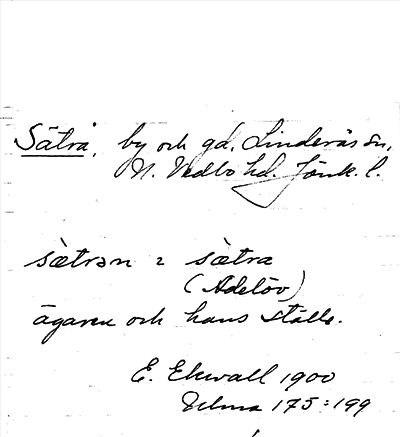 Sätra, by och gd, Linderås sn,
N. Vedbo hd. Jönk. l.
sætrən 2 sætra
(Adelöv)
ägaren och hans ställe.
E. Ekwall 1900
175:199